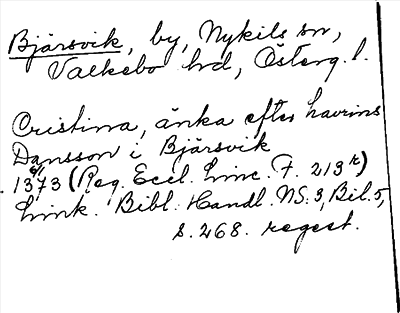 Bjärsvik, by, Nykils sn,
Valkebo hd, Österg. l.
Cristina, änka efter Laurins
Dansson i Bjärsvik
1373 (Reg. Eccl. Linc. F. 213r)
Link. Bibl. Handl. NS. 3, Bil. 5,
s. 268. regest.